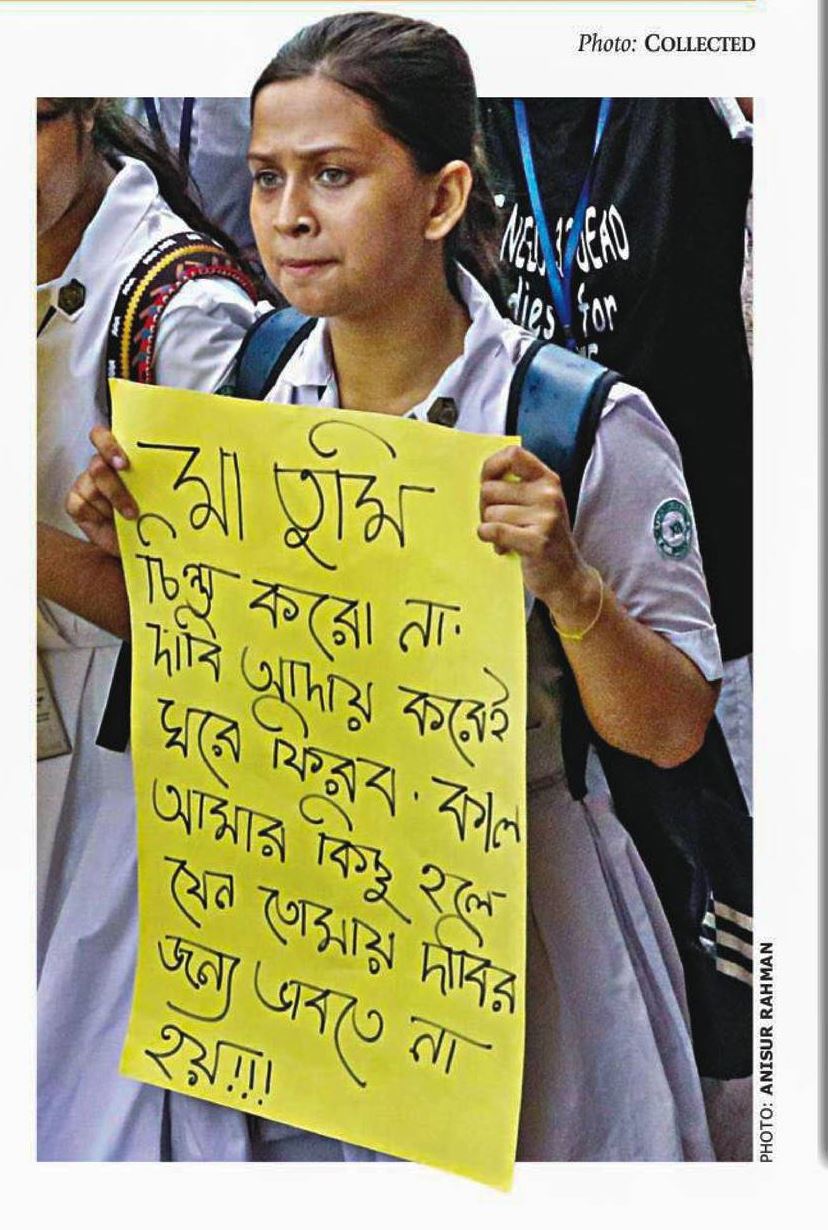 Photo: COLLECTED
DEAD
dies for
মা তুমি
চিন্তা করো না.
দাবি আদায় করেই
ঘরে ফিরব. কাল
আমার কিছু হলে
যেন তোমায় দাবির
জন্য ভাবতে না
হয়!!!
PHOTO: ANISUR RAHMAN